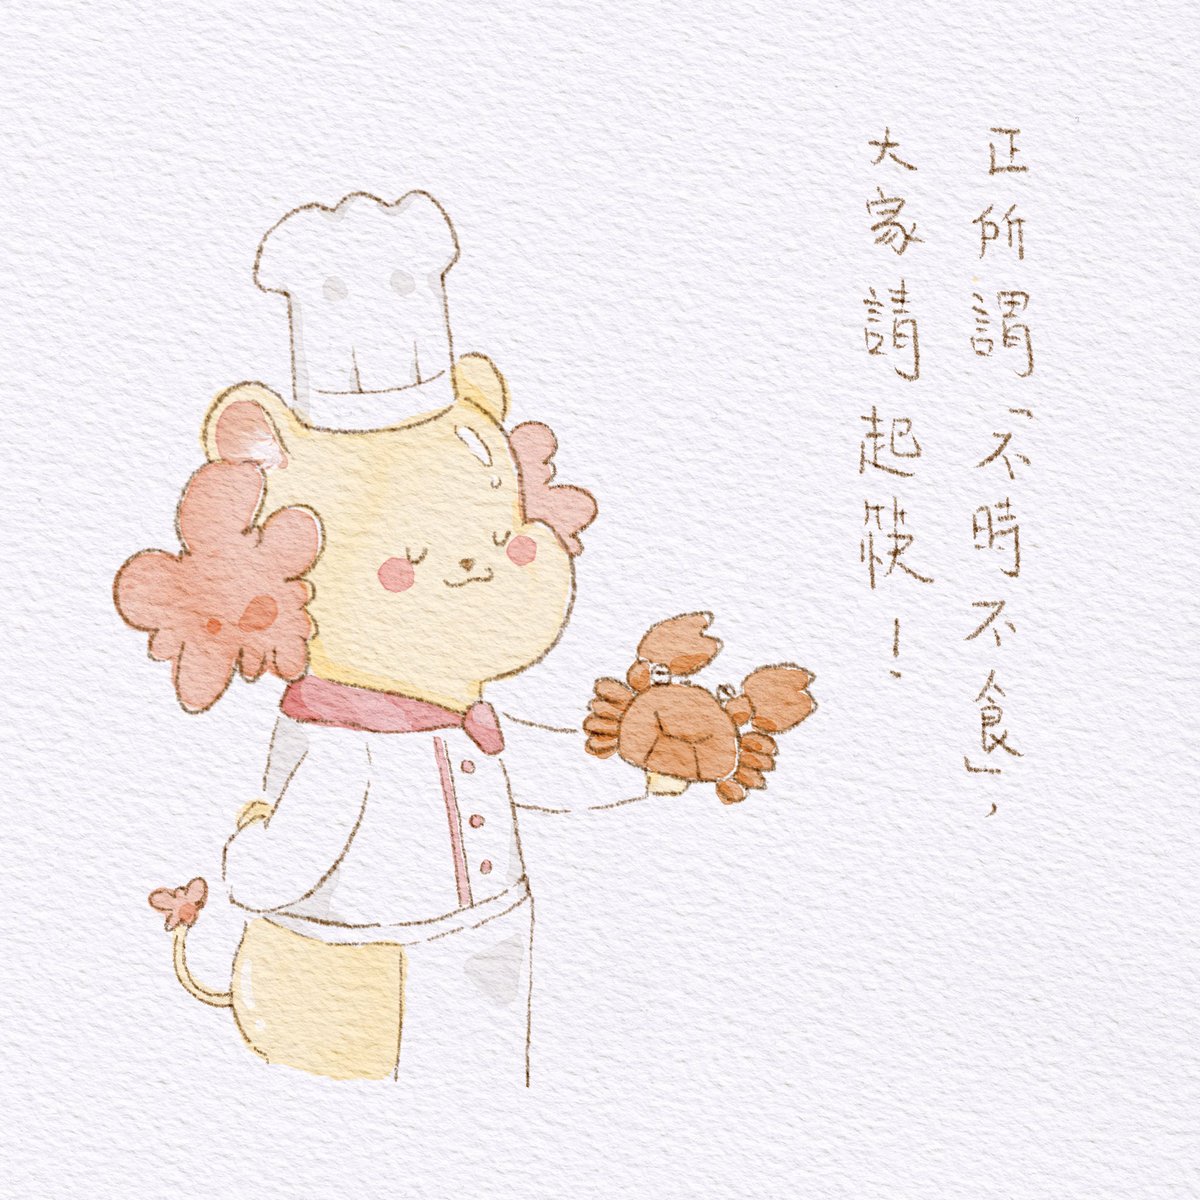 正所謂「不時不食」，
大家請起筷！